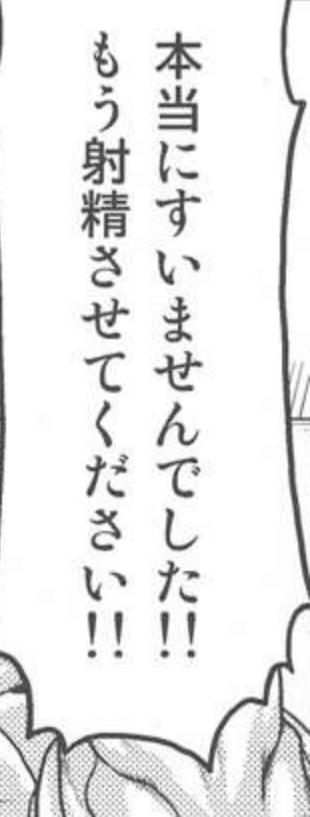 本当にすいませんでした!!
もう射精させてください!!